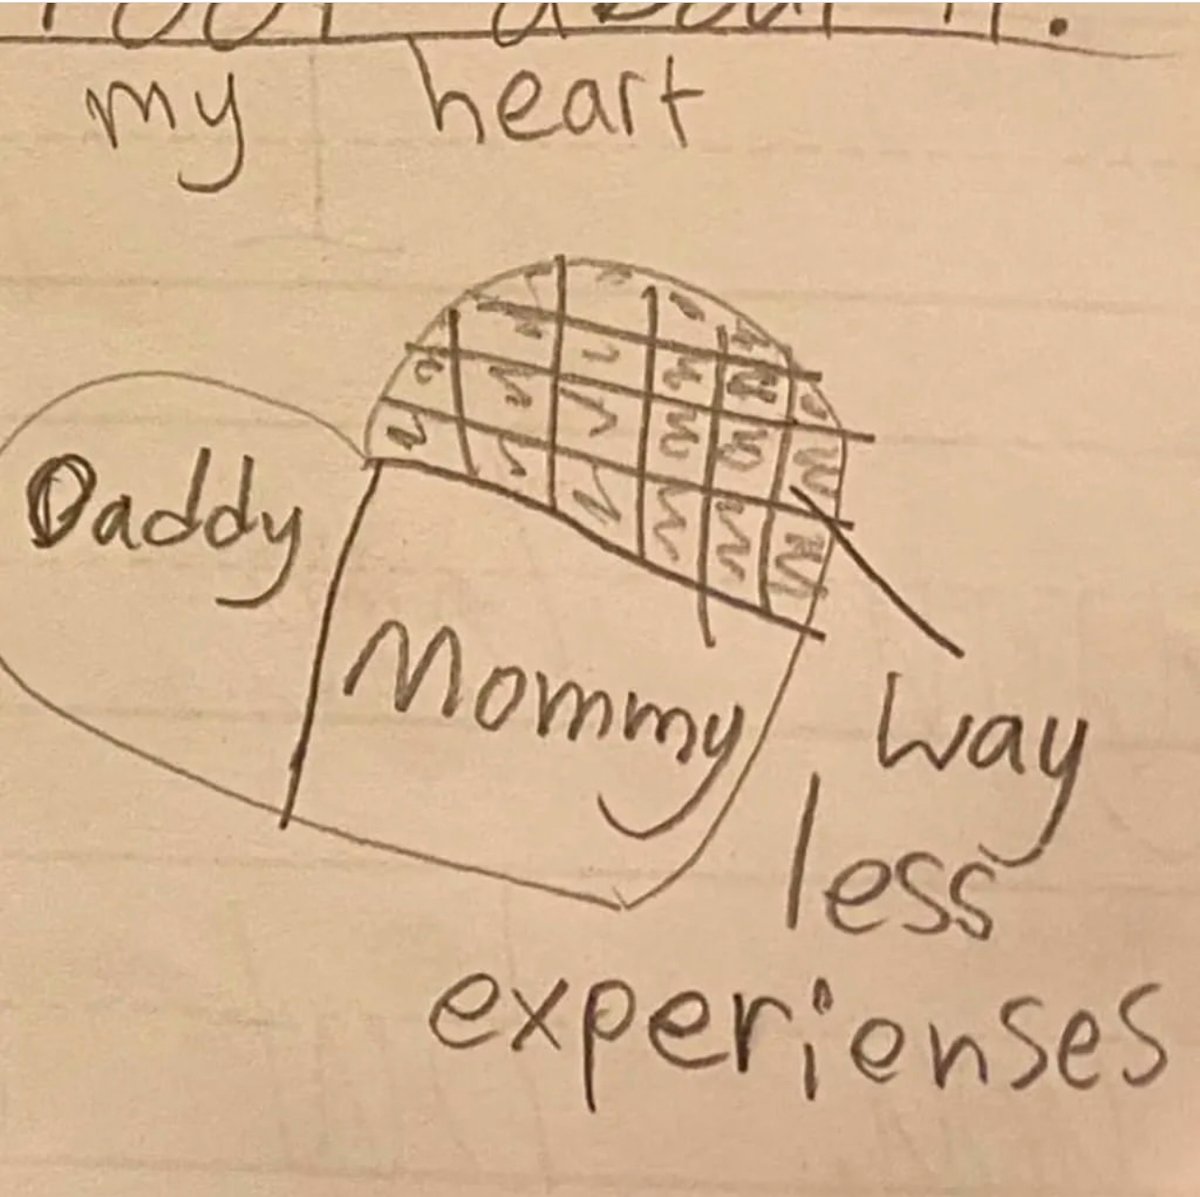 about it.
my heart
Daddy
Mommy
way
less
experienses